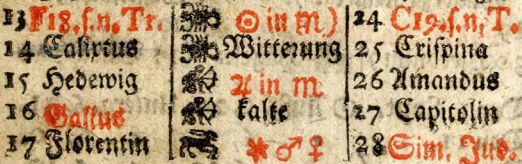 13 F 18. s. n. Tr. ☉ in ♏) 24 C 19. s. n. T.
14 Calixtus Witterung 25 Crispina
15 Hedewig ♃ in ♏ 26 Amandus
16 Gallus kalte 27 Capitolin
17 Florentin ✱ ♂ ♀ 28 Sim. Jud.